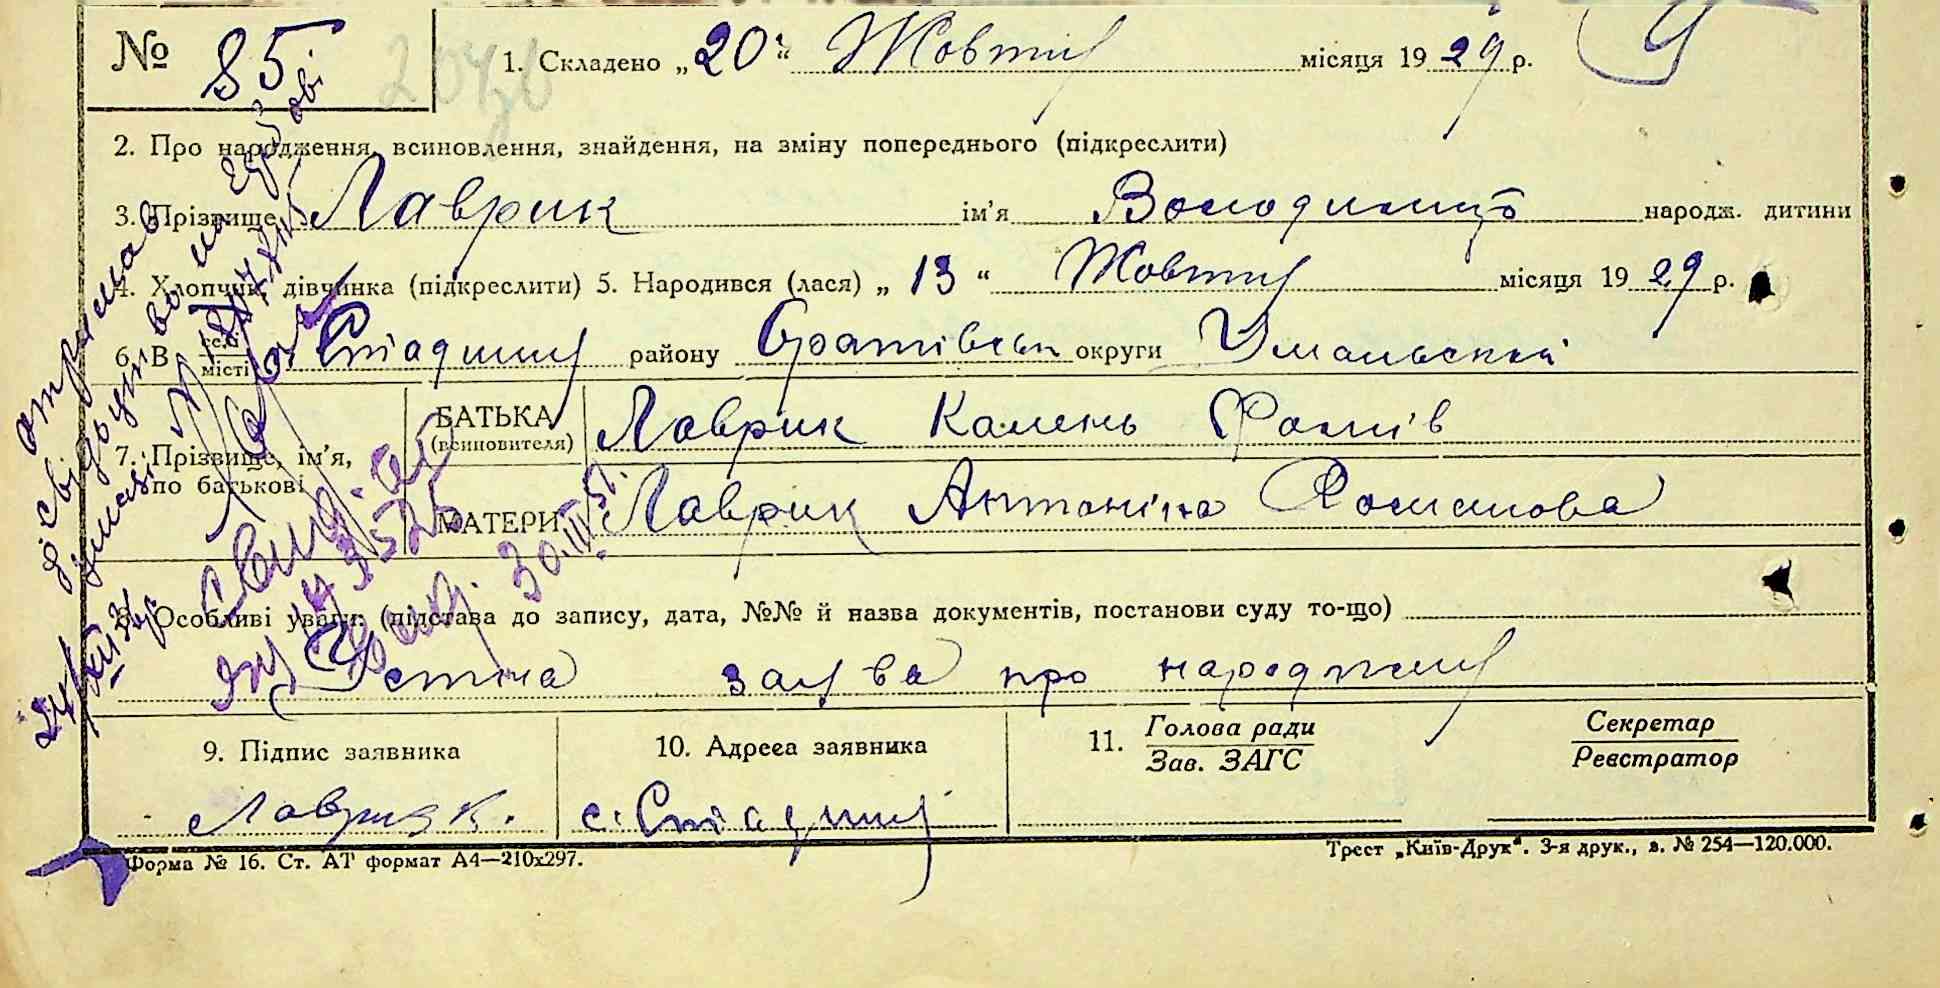 № 85
1. Складено „20“ Жовтня місяця 1929 р.
2. Про народження, всиновлення, знайдення, на зміну попереднього (підкреслити)
3. Прізвище Лаврик ім’я Володимир народж. дитини
4. Хлопчик, дівчинка (підкреслити) 5. Народився (лася) „13“ Жовтня місяця 1929 р.
6. В селі місті Стадниця району Оратівськ округи Уманської
7. Прізвище, ім’я, по батькові
БАТЬКА (всиновителя) Лаврик Камень Фомів
МАТЕРИ Лаврик Антоніна Романова
8. Особливі уваги: (підстава до запису, дата, №№ й назва документів, постанови суду то-що)
Устна заява про народження
9. Підпис заявника
10. Адреса заявника
11. Голова ради Зав. ЗАГС
Секретар Реєстратор
Лаврик.
с. Стадниця
Форма № 16. Ст. АТ формат А4—210х297.
Трест „Київ-Друк“. 3-я друк., з. № 254—120.000.
отримав
свідоцтво на